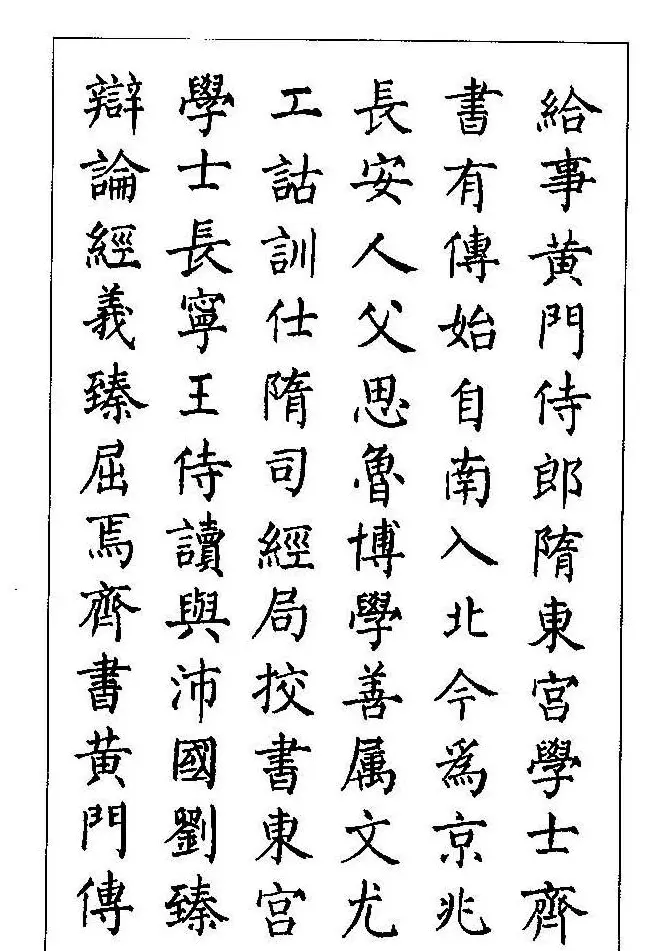 給事黄門侍郎隋東宮學士齊
書有傳始自南入北今為京兆
長安人父思魯博學善属文尤
工詁訓仕隋司經局挍書東宮
學士長寧王侍讀與沛國劉臻
辯論經義臻屈焉齊書黄門傳